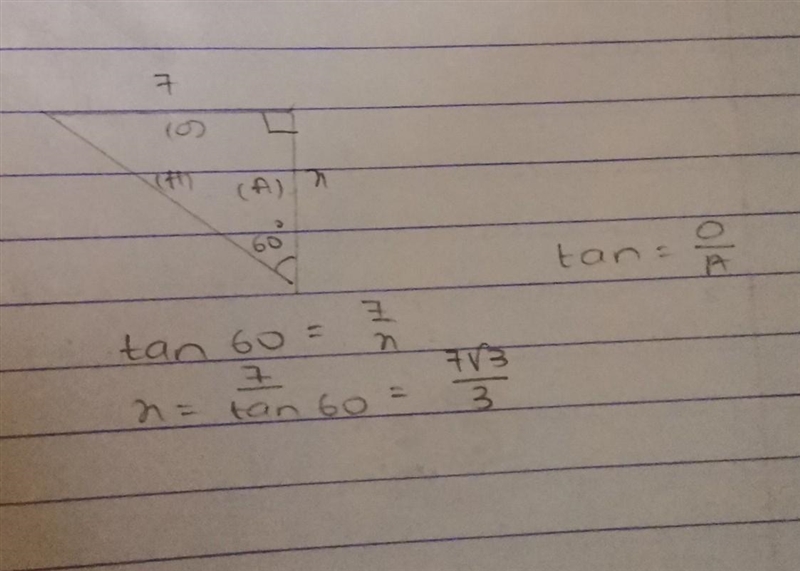 7
(O)
(H) (A) x
60°
tan = O/A
tan 60 = 7/x
x = 7/tan 60 = 7√3/3